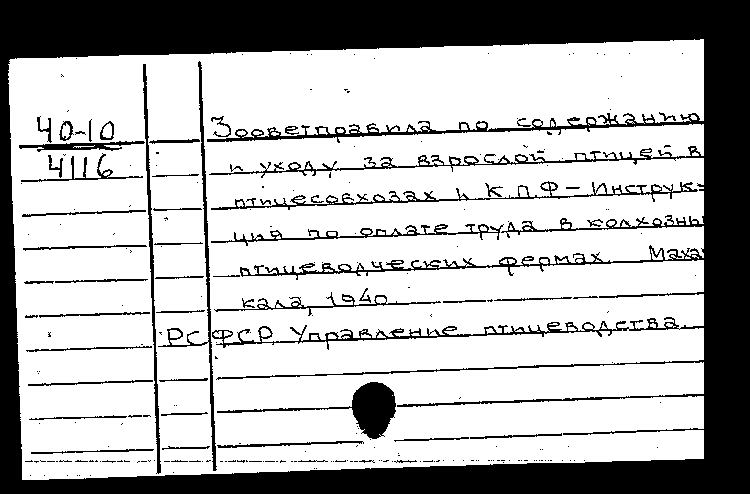 40-10
4116
Зооветправила по содержанию
и уходу за взрослой птицей в
птицесовхозах и К.П.Ф – Инструк-
ция по оплате труда в колхозны
птицеводческих фермах. Маха
кала, 1940.
РСФСР Управление птицеводства.